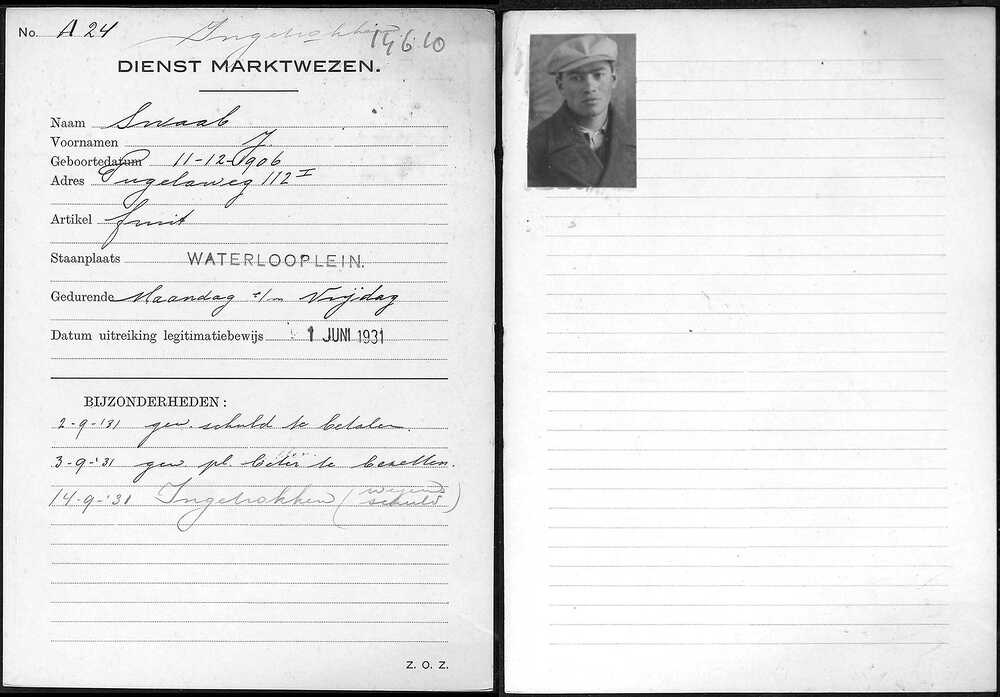 No. A 24 Ingetrokken 14610
DIENST MARKTWEZEN.
Naam Swaab
Voornamen J.
Geboortedatum 11-12-1906
Adres Tugelaweg 112 I
Artikel fruit
Staanplaats WATERLOOPLEIN.
Gedurende Maandag t/m Vrijdag
Datum uitreiking legitimatiebewijs 1 JUNI 1931
BIJZONDERHEDEN:
2-9-'31 gew. schuld te betalen.
3-9-'31 gew pl. beter te bezetten.
14-9-'31 Ingetrokken (wegens
schuld)
Z. O. Z.